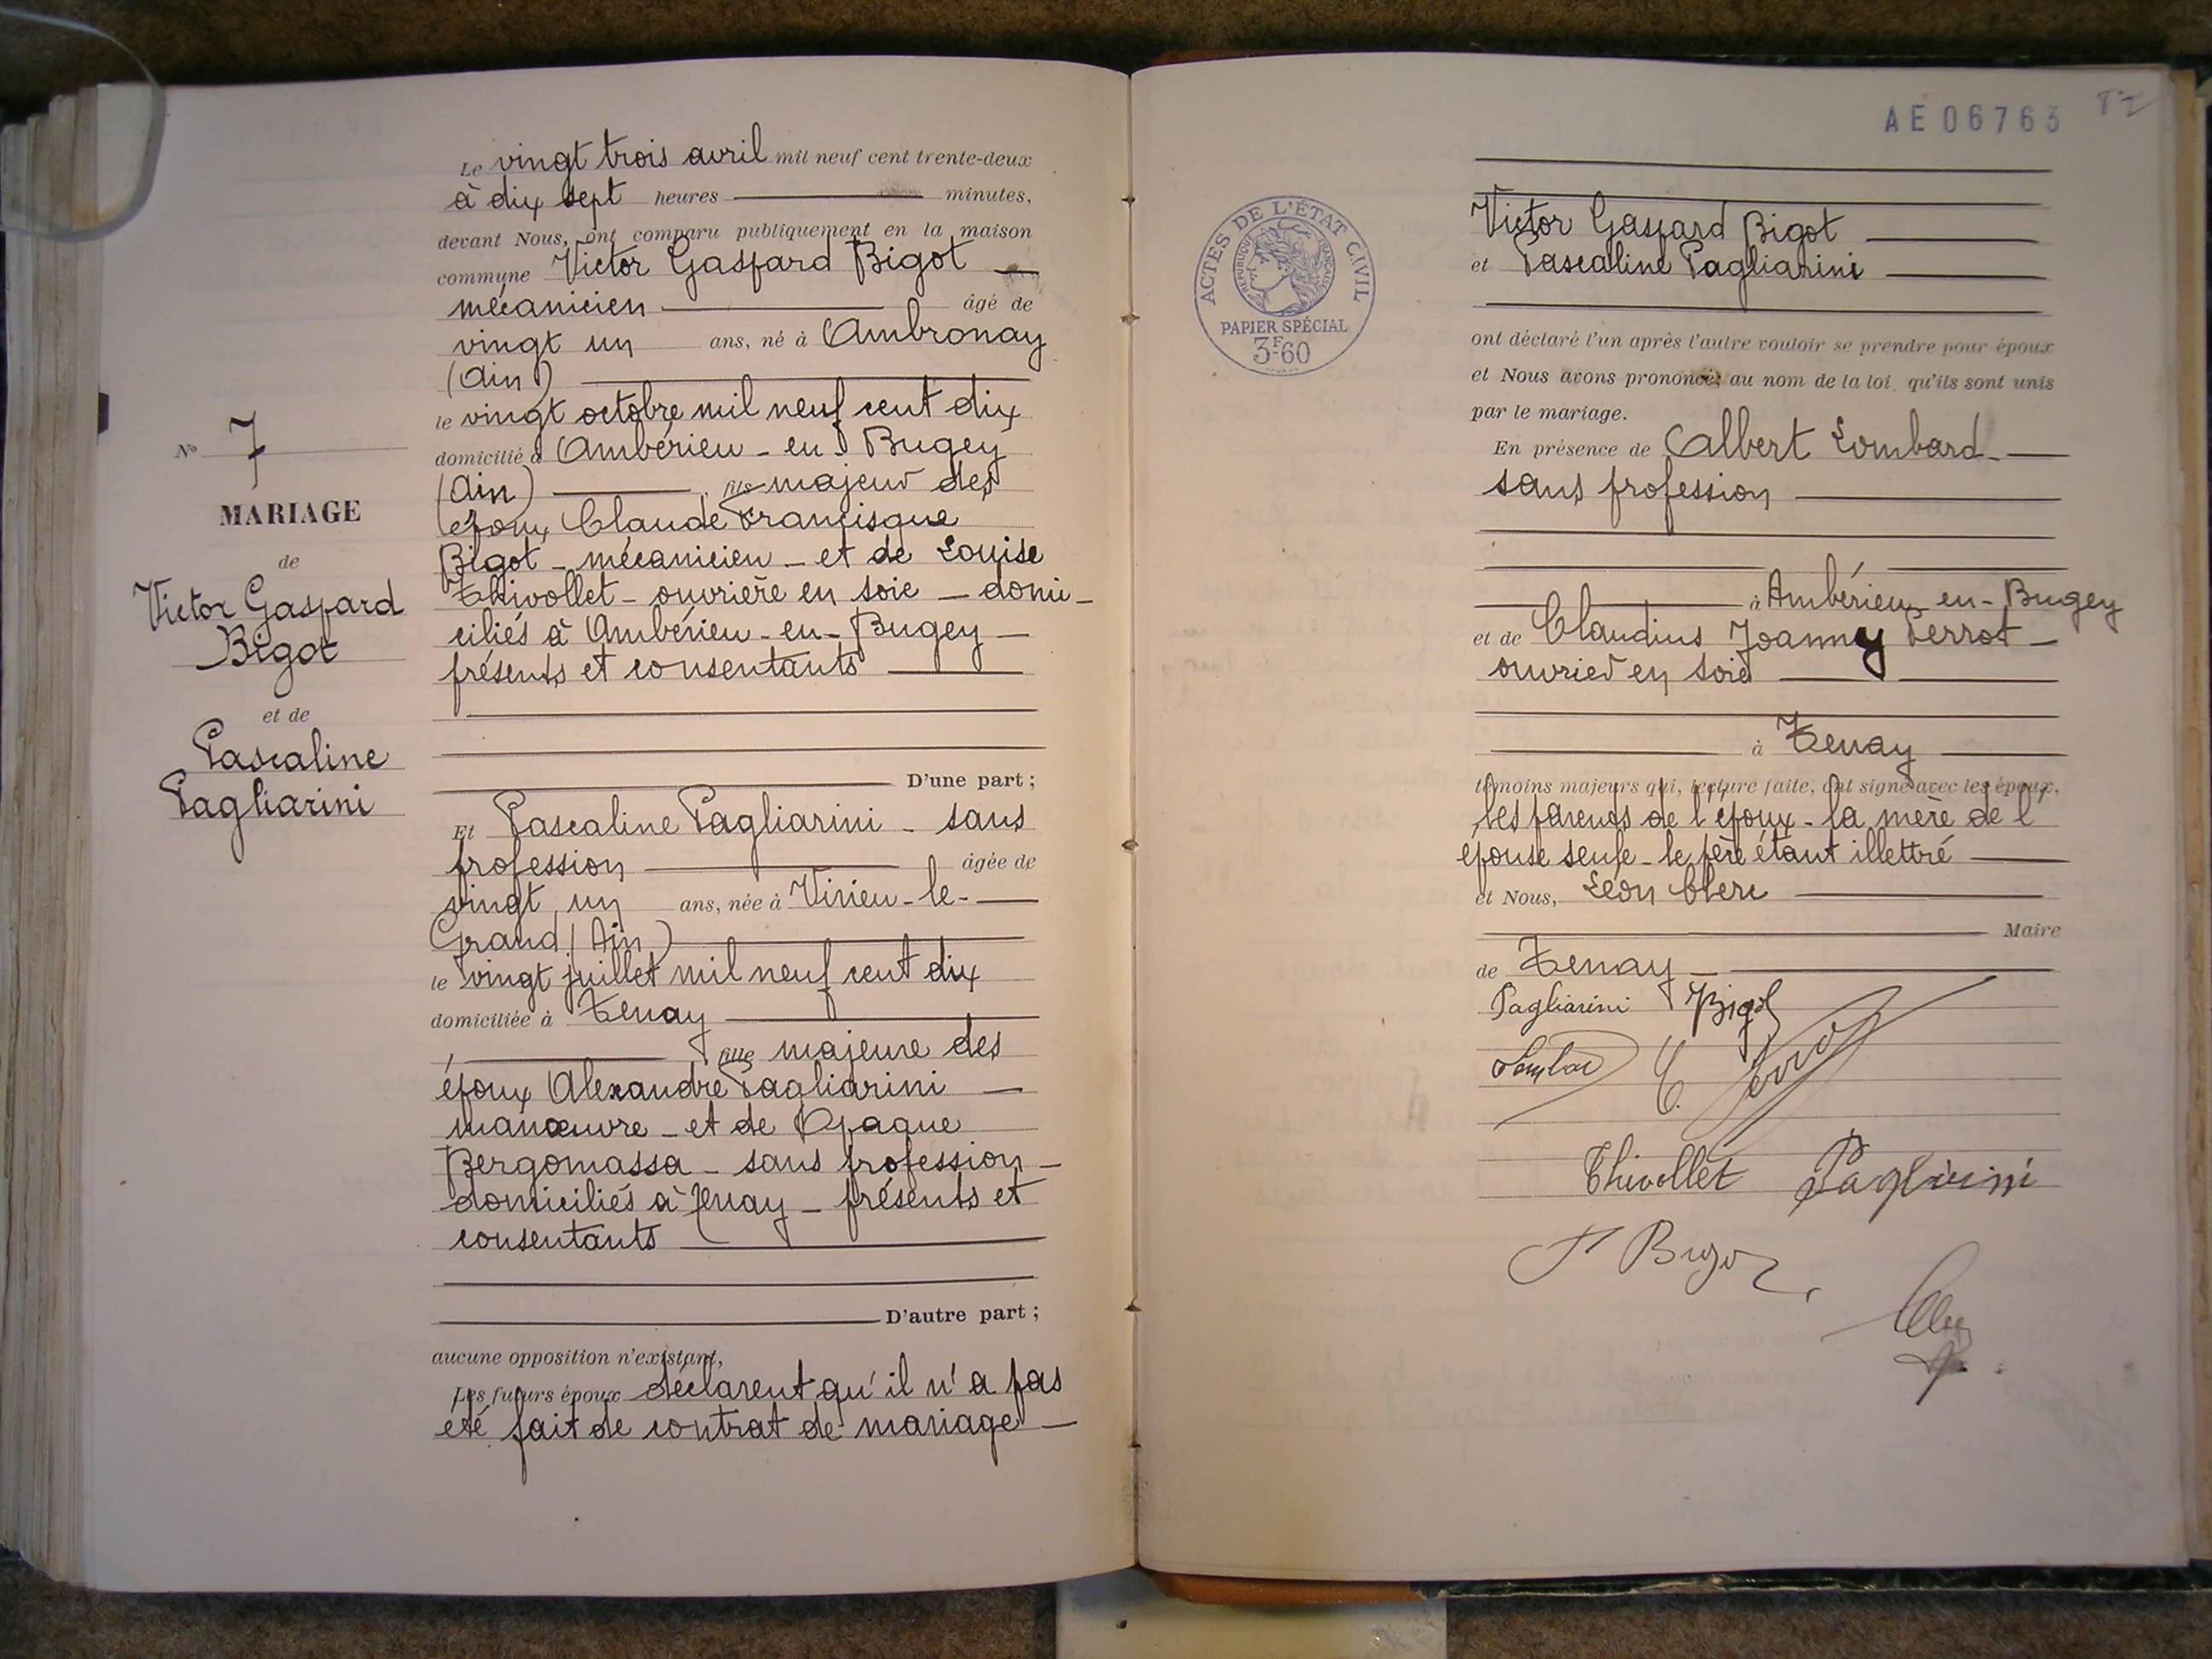 N° 7
MARIAGE
de
Victor Gaspard
Bigot
et de
Pascaline
Pagliarini
Le vingt trois avril mil neuf cent trente-deux
à dix sept heures minutes,
devant Nous, ont comparu publiquement en la maison
commune Victor Gaspard Bigot
mécanicien âgé de
vingt un ans, né à Ambronay
(Ain)
le vingt octobre mil neuf cent dix
domicilié à Ambérieu-en-Bugey
(Ain) fils majeur des
époux Claude Francisque
Bigot - mécanicien - et de Louise
Thivollet - ouvrière en soie - domi-
ciliés à Ambérieu-en-Bugey
présents et consentants
D'une part ;
Et Pascaline Pagliarini - sans
profession âgée de
vingt un ans, née à Virieu-le-
Grand (Ain)
le vingt juillet mil neuf cent dix
domiciliée à Tenay
fille majeure des
époux Alexandre Pagliarini
manœuvre - et de
Bergomassa - sans profession -
domiciliés à Tenay - présents et
consentants
D'autre part ;
aucune opposition n'existant,
Les futurs époux déclarent qu'il n'a pas
été fait de contrat de mariage
AE 06763
ACTES DE L'ÉTAT CIVIL
RÉPUBLIQUE FRANÇAISE
PAPIER SPÉCIAL
3F60
Victor Gaspard Bigot
et Pascaline Pagliarini
ont déclaré l'un après l'autre vouloir se prendre pour époux
et Nous avons prononcé, au nom de la loi, qu'ils sont unis
par le mariage.
En présence de Albert Lombard
sans profession
à Ambérieu-en-Bugey
et de Claudius Joanny Perrot
ouvrier en soie
à Tenay
témoins majeurs qui, lecture faite, ont signé avec les époux,
les parents de l'époux - la mère de l'
épouse seule - le père étant illettré
et Nous, Léon Clerc
Maire
de Tenay
Pagliarini Bigot
C. Perrot
Thivollet Pagliarini
F Bigot